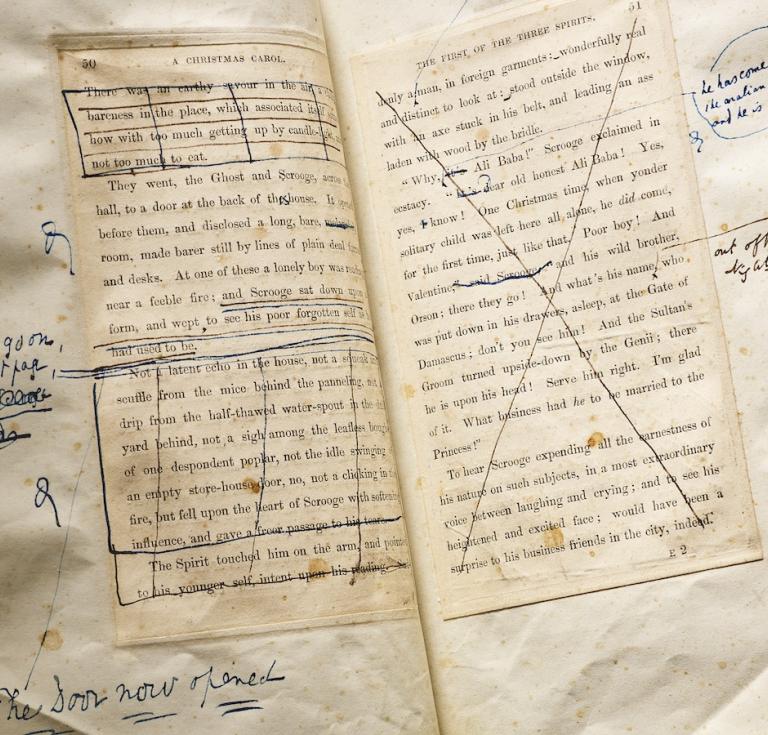 50
A CHRISTMAS CAROL.
There was an earthy savour in the air, a
bareness in the place, which associated itself
how with too much getting up by candle-light,
not too much to eat.
They went, the Ghost and Scrooge, across
hall, to a door at the back of the house. It
before them, and disclosed a long, bare,
room, made barer still by lines of plain deal
and desks. At one of these a lonely boy was
near a feeble fire; and Scrooge sat down upon
form, and wept to see his poor forgotten self
had used to be.
Not a latent echo in the house, not a
scuffle from the mice behind the panneling, not
drip from the half-thawed water-spout in the
yard behind, not a sigh among the leafless
of one despondent poplar, not the idle swinging
an empty store-house door, no, not a clicking in
fire, but fell upon the heart of Scrooge with
influence, and gave a freer passage to his tears.
The Spirit touched him on the arm, and
to his younger self, intent upon his reading.
The Door now opened
51
THE FIRST OF THE THREE SPIRITS.
denly a man, in foreign garments: wonderfully real
and distinct to look at: stood outside the window,
with an axe stuck in his belt, and leading an ass
laden with wood by the bridle.
"Why, it's Ali Baba!" Scrooge exclaimed in
ecstacy. "It's dear old honest Ali Baba! Yes,
yes, I know! One Christmas time, when yonder
solitary child was left here all alone, he did come,
for the first time, just like that. Poor boy! And
Valentine," said Scrooge, "and his wild brother,
Orson; there they go! And what's his name, who
was put down in his drawers, asleep, at the Gate of
Damascus; don't you see him! And the Sultan's
Groom turned upside-down by the Genii; there
he is upon his head! Serve him right. I'm glad
of it. What business had he to be married to the
Princess!"
To hear Scrooge expending all the earnestness of
his nature on such subjects, in a most extraordinary
voice between laughing and crying; and to see his
heightened and excited face; would have been a
surprise to his business friends in the city, indeed.
E 2
he has come
and he is
out of